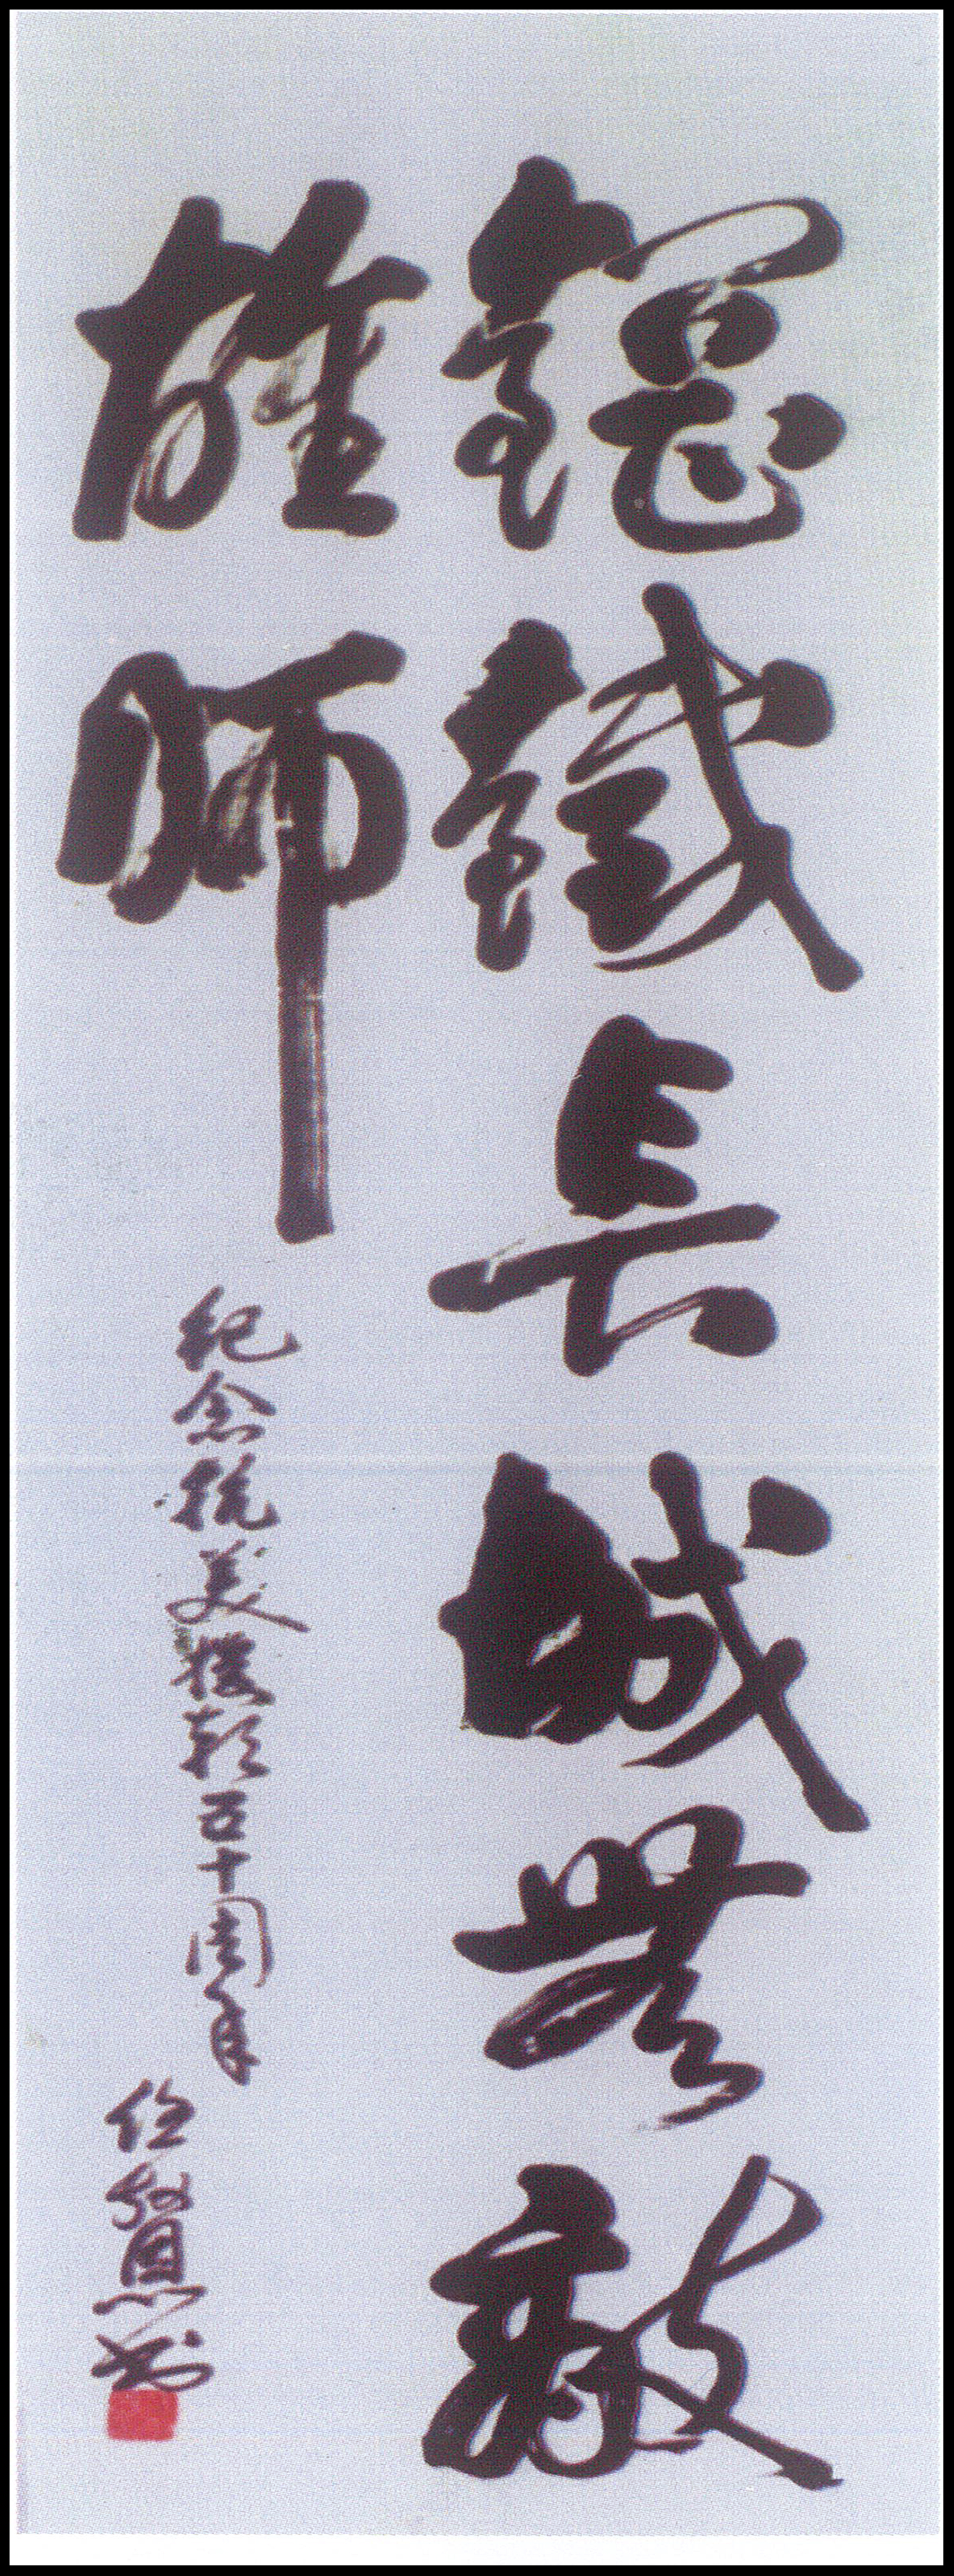 鋼鐵長城無敵
雄師
纪念抗美援朝五十周年
任